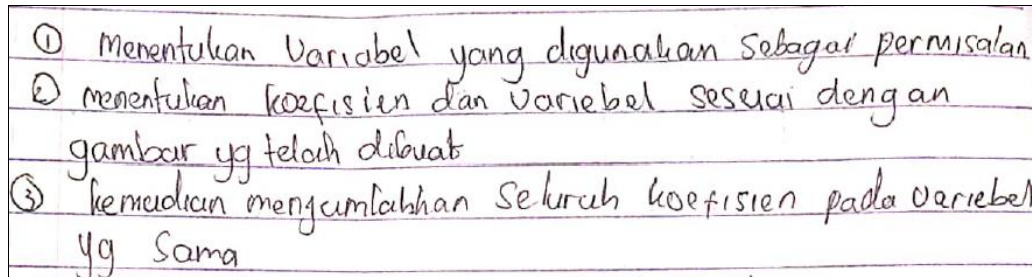 ① Menentukan Variabel yang digunakan Sebagai permisalan
② menentukan koefisien dan variebel sesuai dengan
gambar yg telah dibuat
③ kemudian menjumlahkan Seluruh koefisien pada variebel
yg Sama